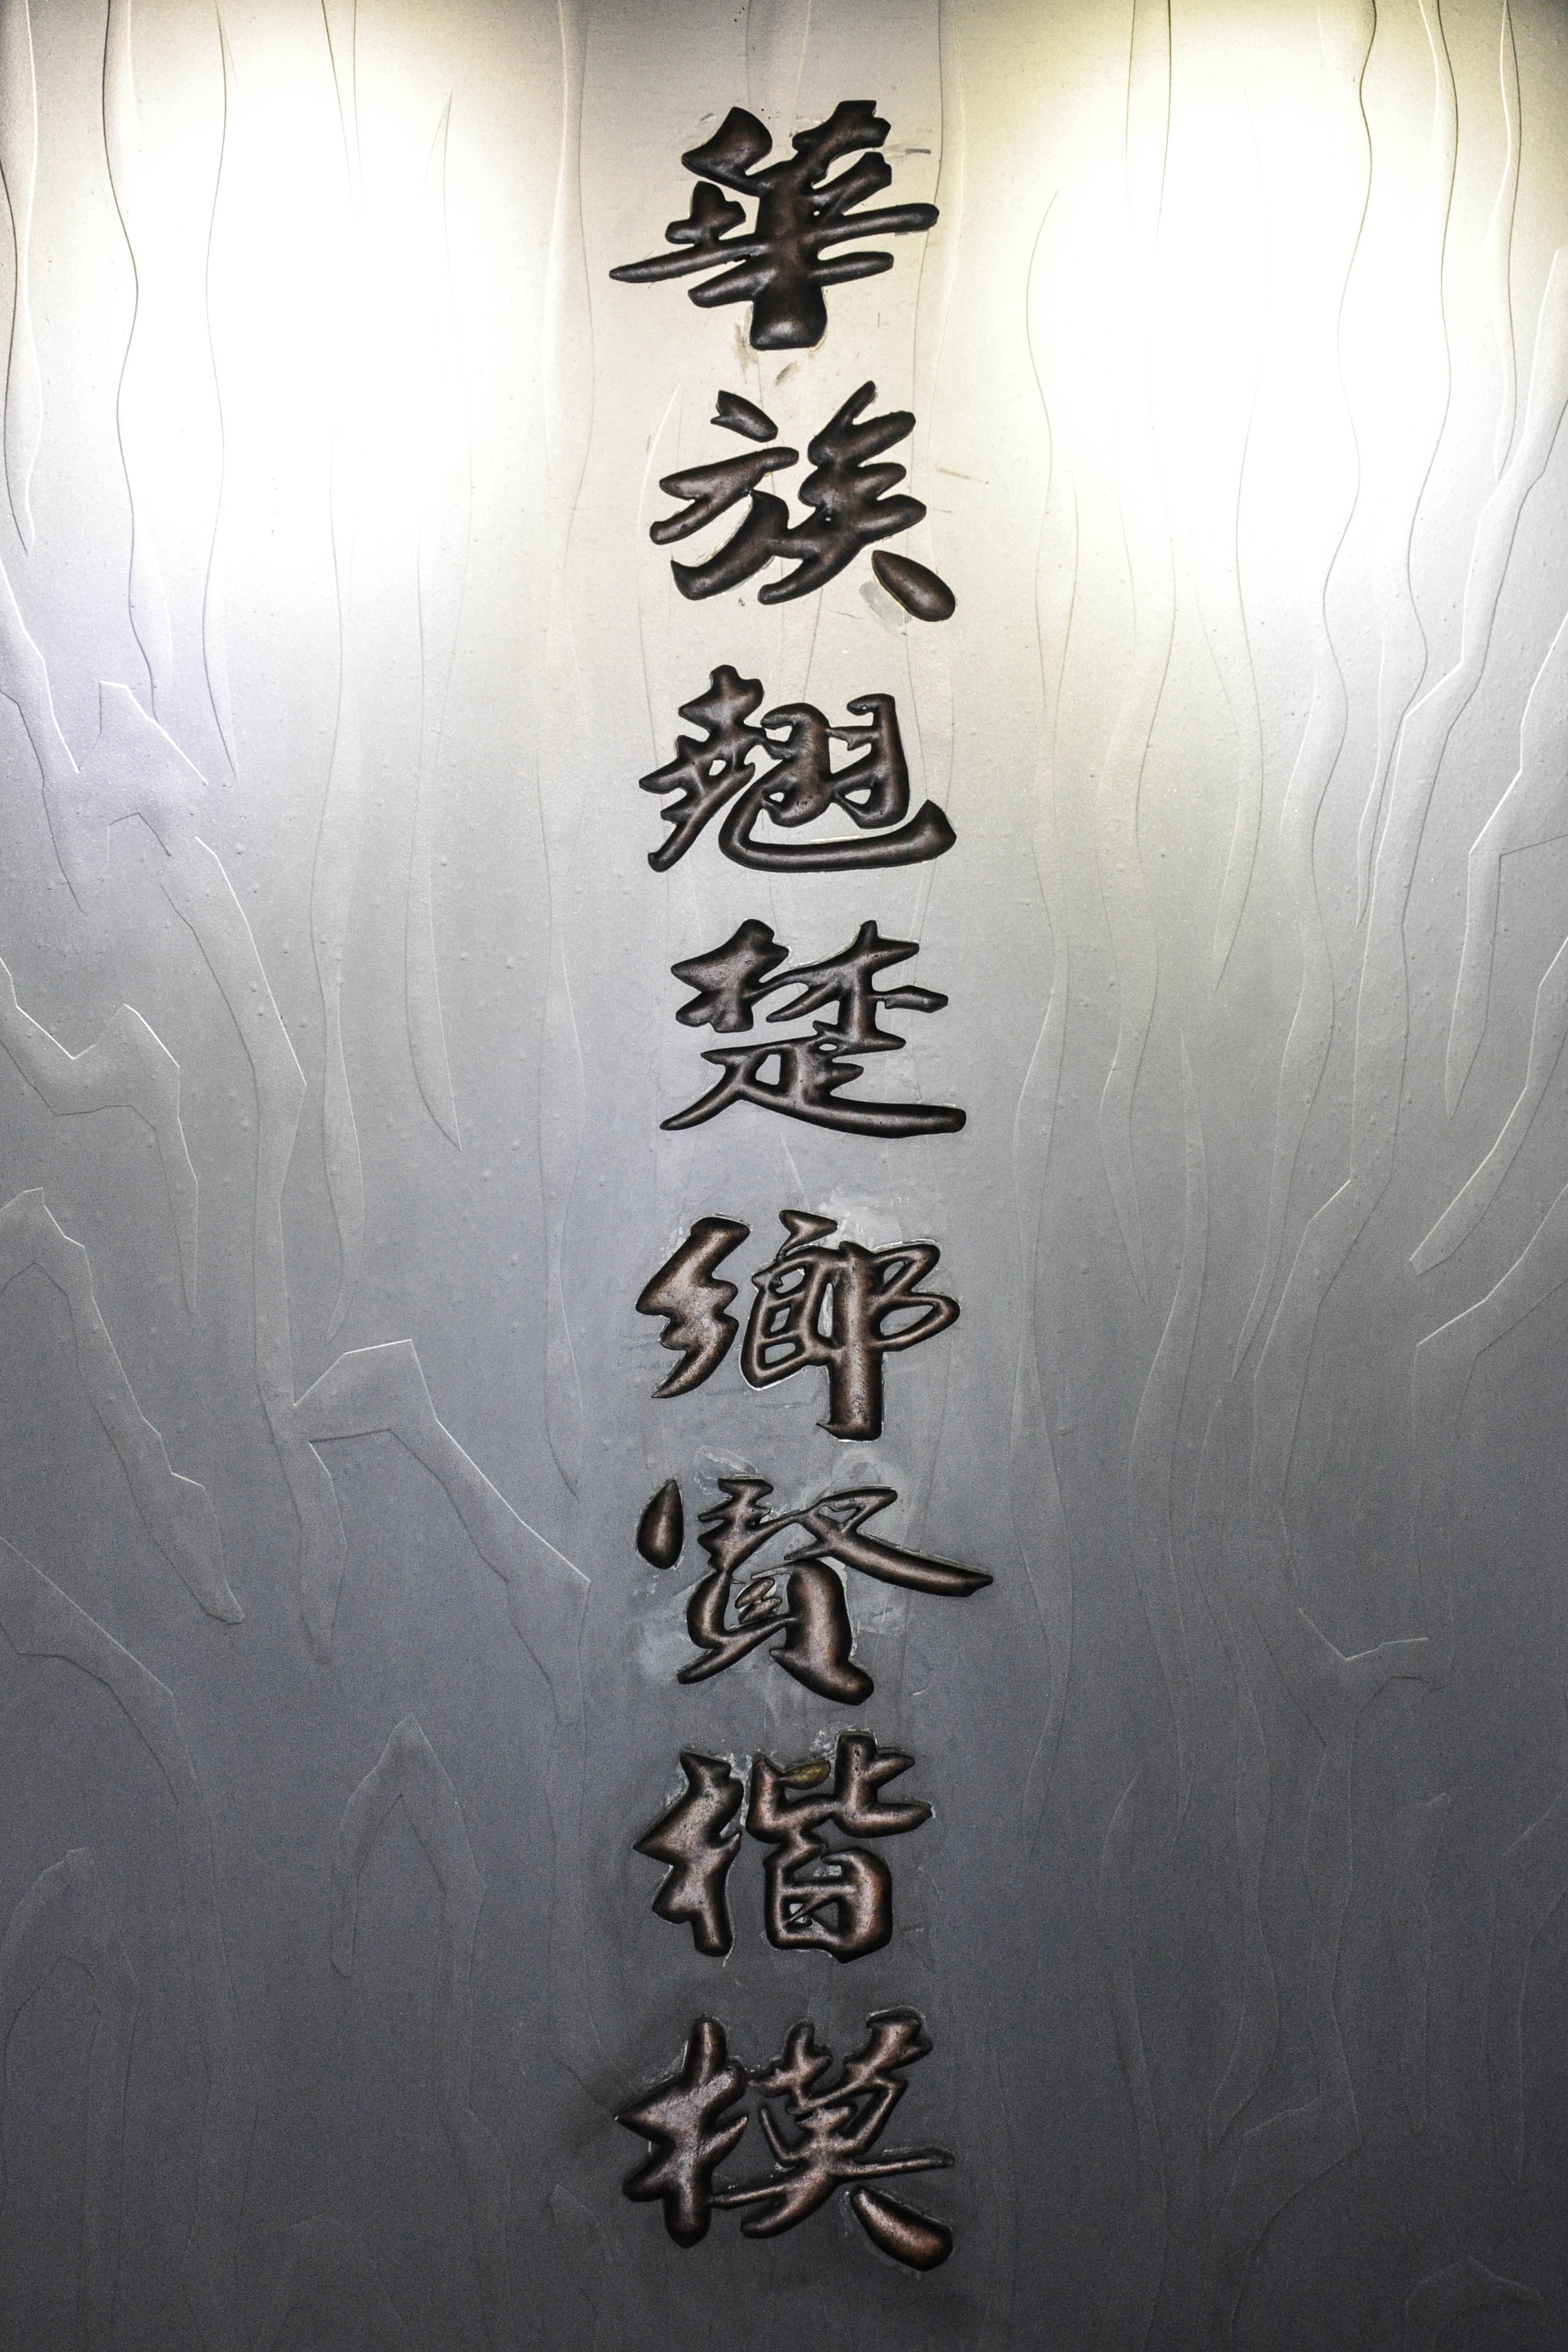 華族翹楚鄉賢楷模